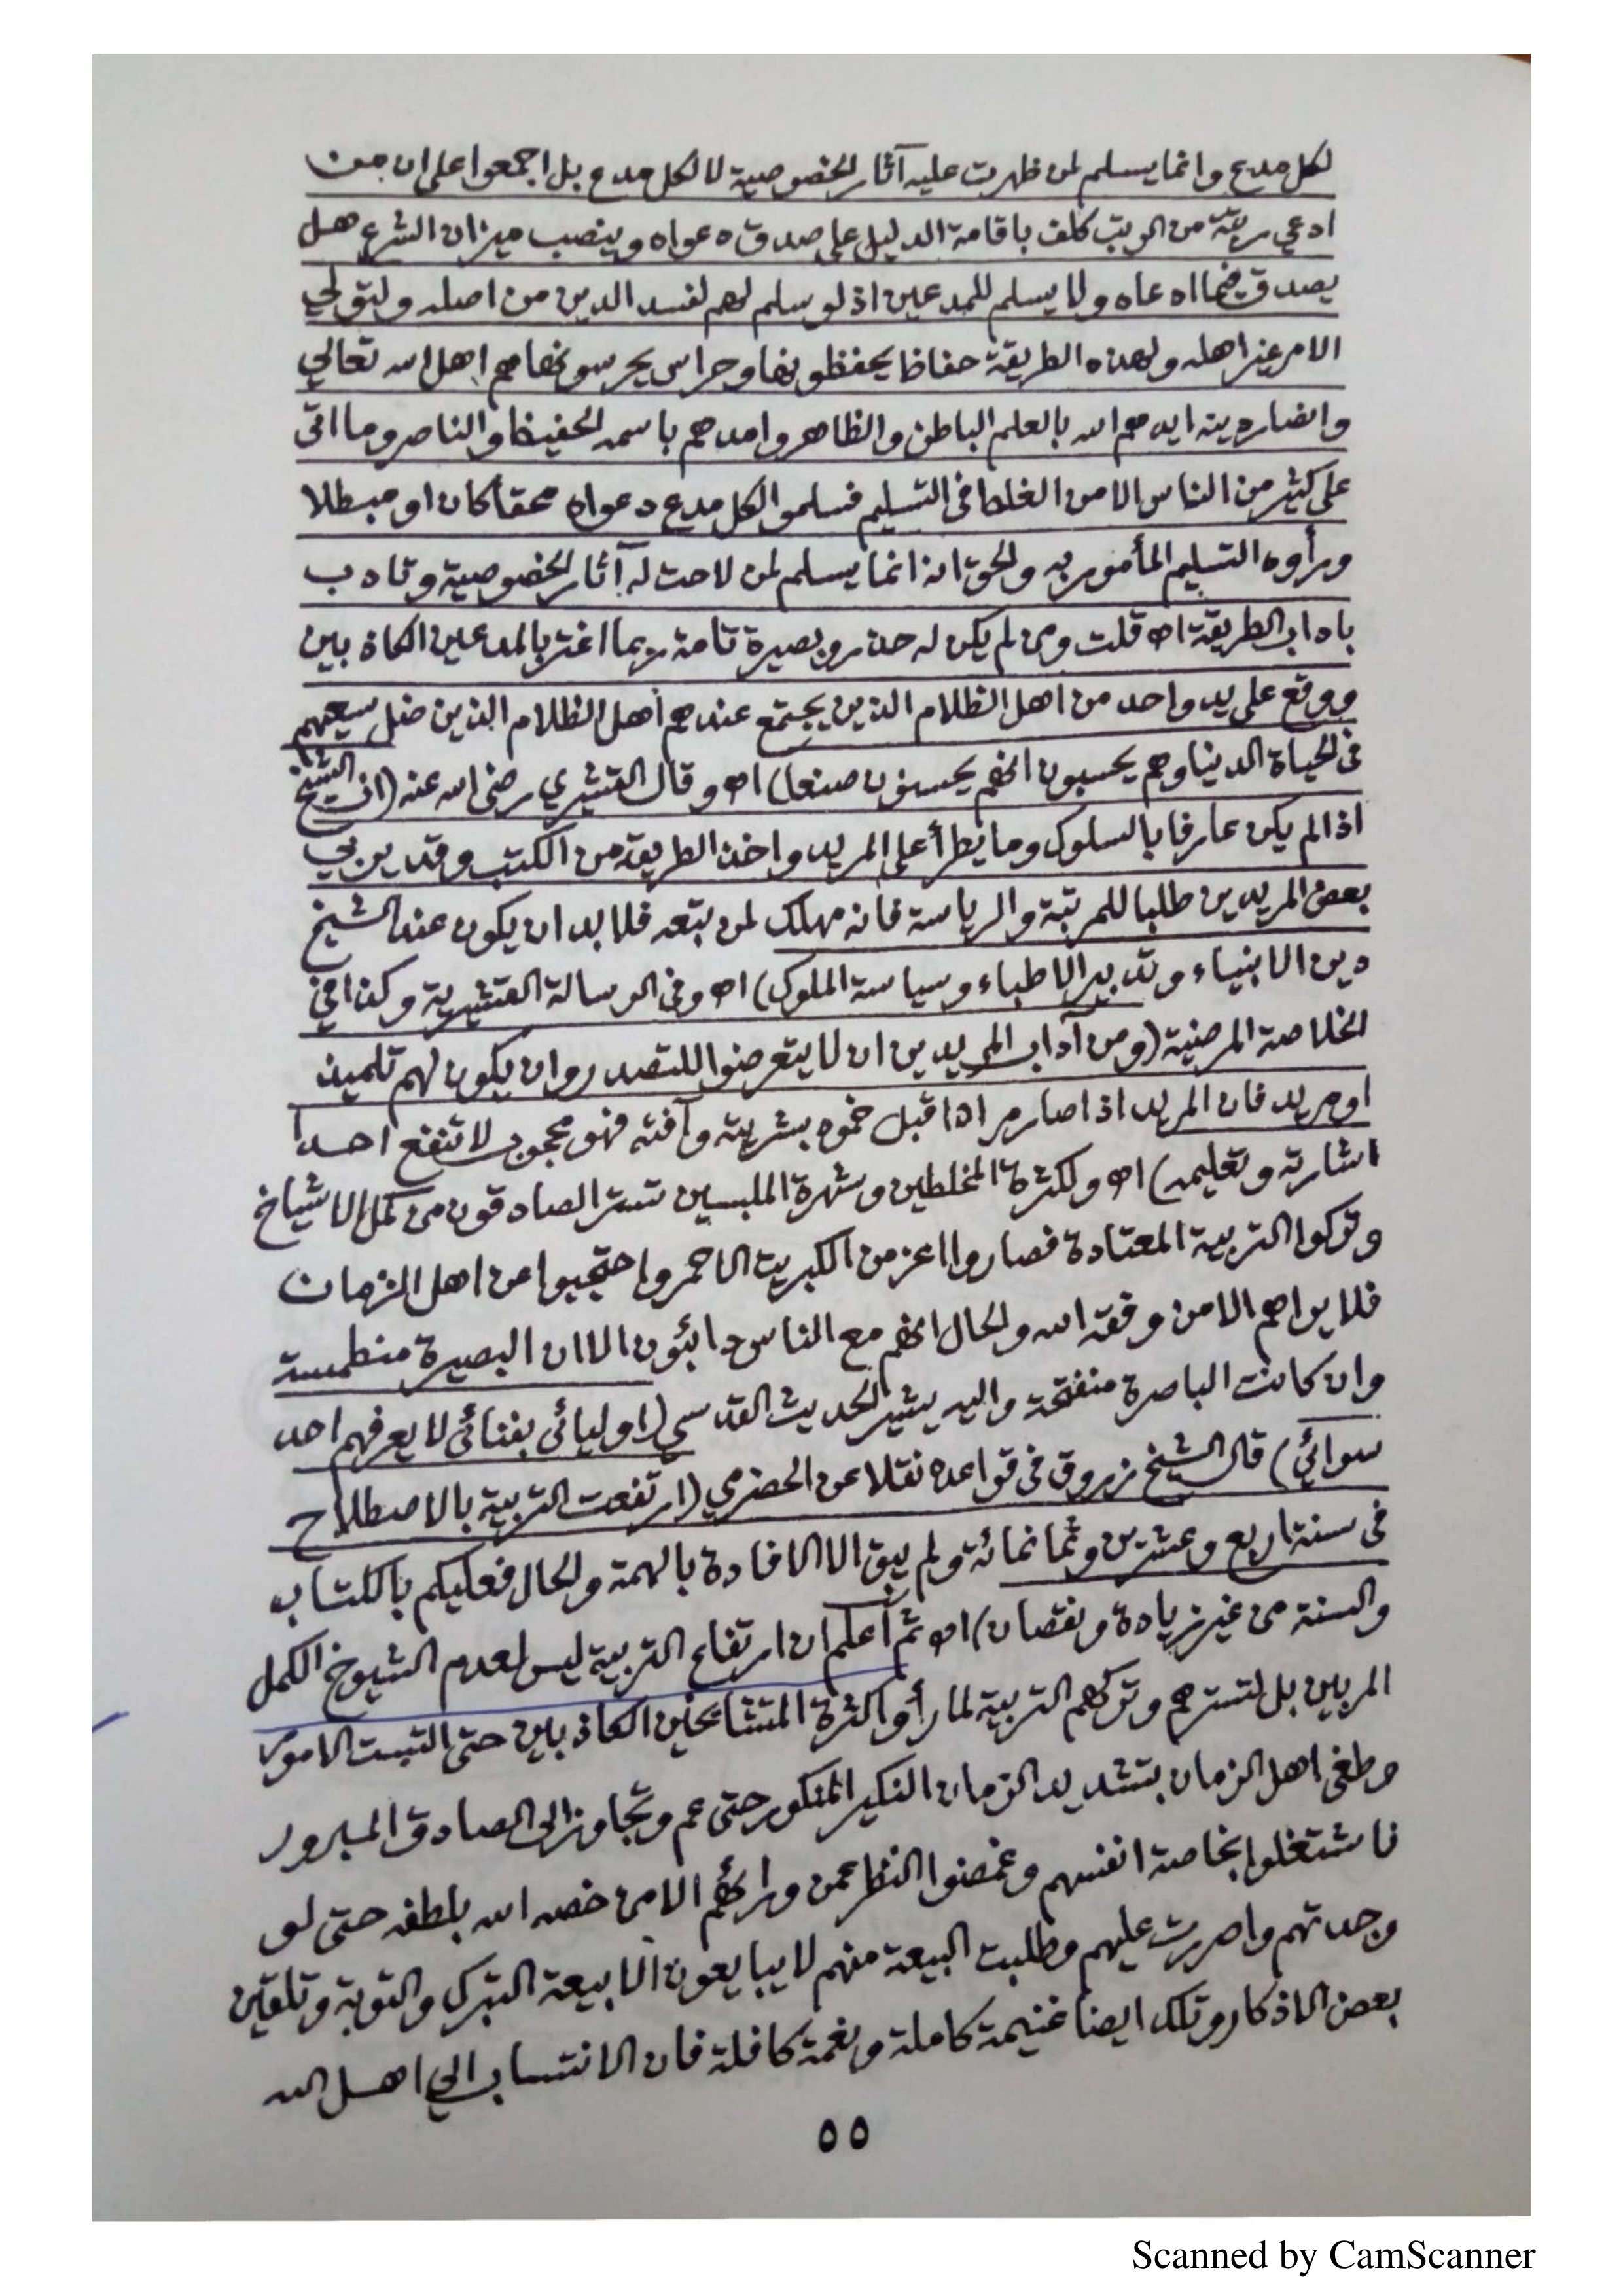 لكل مدع وانما يسلم لمن ظهرت عليه آثار الخصوصية لا لكل مدع بل اجمعوا على ان من
ادعي رتبة من الرتب كلف باقامة الدليل على صدق دعواه وينصب ميزان الشرع هل
يصدق فيما ادعاه ولا يسلم للمدعين اذ لو سلم لهم لفسد الدين من اصله ولتولي
الامر غير اهله ولهذه الطريقة حفاظا يحفظونها وحراس يحرسونها هم اهل الله تعالي
وانصار دينه ايدهم الله بالعلم الباطن والظاهر وامدهم باسمه الحفيظ والناصر وما اتى
على كثير من الناس الا من الغلط فى التسليم فسلموا لكل مدع دعواه محقا كان او مبطلا
ورأوه التسليم المأمور به والحق انه انما يسلم لمن لاحت له آثار الخصوصية وتادب
باداب الطريقة اه قلت ومن لم يكن له حذر وبصيرة تامة ربما اغتر بالمدعين الكاذبين
ووقع على يد واحد من اهل الظلام الذين يجتمع عندهم اهل الظلام الذين ضل سيعهم
فى الحياة الدنيا وهم يحسبون انهم يحسنون صنعا) اه وقال القشيري رضى الله عنه (ان الشيخ
اذا لم يكن عارفا بالسلوك وما يطرأ على المريد واخذ الطريقة من الكتب وقد يربي
بعض المريدين طلبا للمرتبة والرياسة فانه مهلك لمن يتبعه فلا بد ان يكون عند الشيخ
دين الانبياء وتدبير الاطباء وسياسة الملوك) اه وفى الرسالة القشيرية وكذا في
الخلاصة المرضية (ومن آداب المريدين ان لا يتعرضوا للتصدر وان يكون لهم تلميذ
او مريد فان المريد اذا صار مرادا قبل خمود بشريته وآفته فهو محجوب لا تنفع احدا
اشارته وتعليمه) اه ولكثرة المخلطين وشهرة الملبسين تستر الصادقون من كمل الاشياخ
وتركوا التربية المعتادة فصاروا اعز من الكبريت الاحمر واحتجبوا عن اهل الزمان
فلا يراهم الا من وفقه الله والحال انهم مع الناس دائبون الا ان البصيرة منطمسة
وان كانت الباصرة منفتحة واليه يشير الحديث القدسي (اوليائى بفنائى لا يعرفهم احد
سوائي) قال الشيخ زروق فى قواعده نقلا عن الحضرمي (ارتفعت التربية بالاصطلاح
فى سنة اربع وعشرين وثمانمائة ولم يبق الا الافادة بالهمة والحال فعليكم بالكتاب
والسنة من غير زيادة ونقصان) اه ثم أعلم ان ارتفاع التربية ليس لعدم الشيوخ الكمل
المربين بل لتسترهم وتركهم التربية لما رأوا كثرة المتشايخين الكاذبين حتى التبست الامور
وطغى اهل الزمان بتشديد الزمان النكير المنكور حتى عم وتجاوز الى الصادق المبرور
فاشتغلوا بخاصة انفسهم وغمضوا النظر عمن ورائهم الا من خصه الله بلطفه حتى لو
وجدتهم واصررت عليهم وطلبت البيعة منهم لا يبايعون الا بيعة التبرك والتوبة وتلقين
بعض الاذكار وتلك ايضا غنيمة كاملة ونعمة كافلة فان الانتساب الي اهل الله
٥٥
Scanned by CamScanner